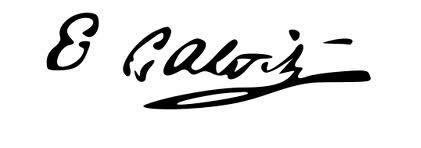 E Galois